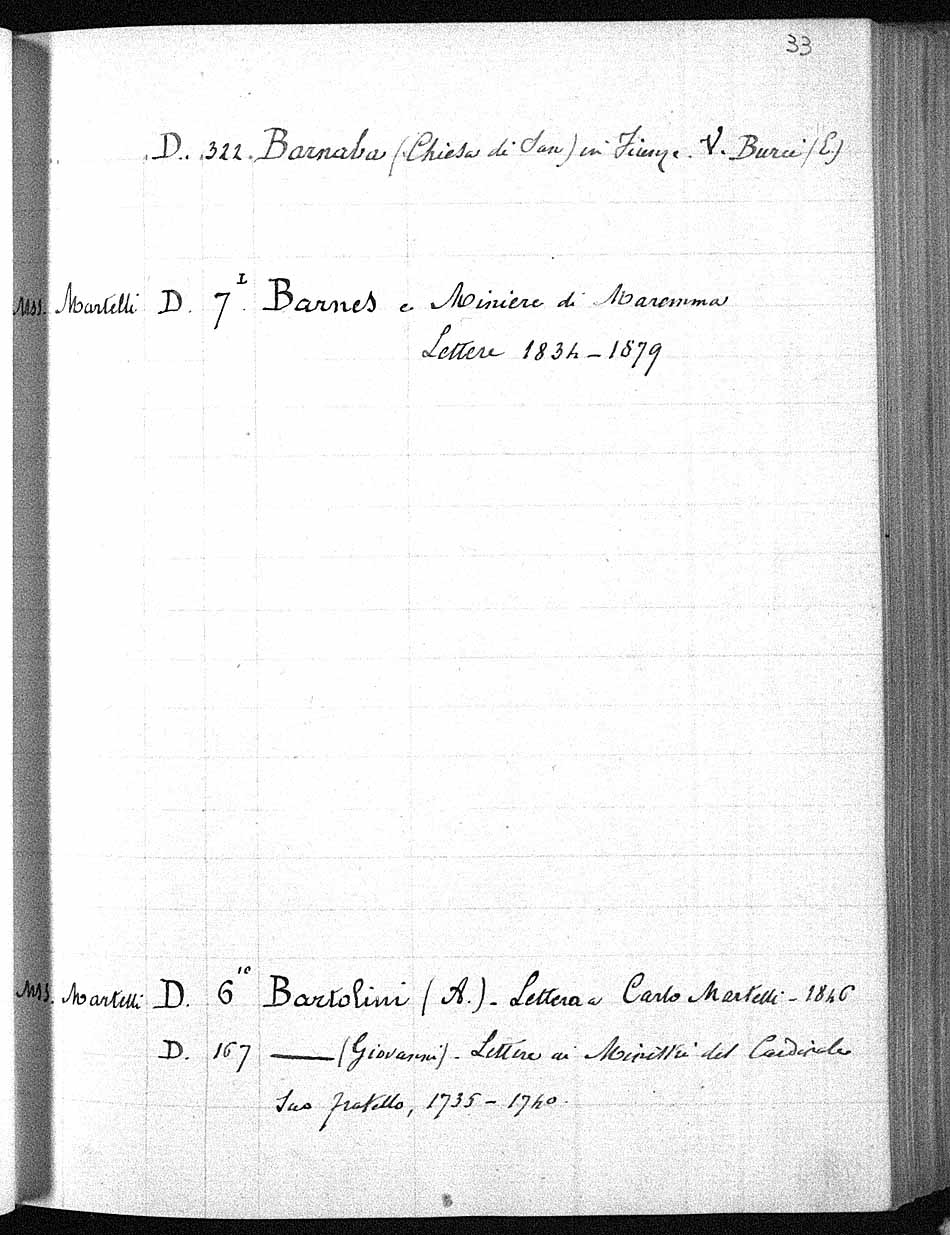 33
D. 322. Barnaba (Chiesa di San) in Firenze. V. Burci (E.)
Mss. Martelli D. 7.I Barnes e Miniere di Maremma
Lettere 1834 - 1879
Mss. Martelli D. 6 10 Bartolini (A.) - Lettera a Carlo Martelli - 1846
D. 167 —— (Giovanni) - Lettere ai Ministri del Cardinale
suo fratello, 1735 - 1740.